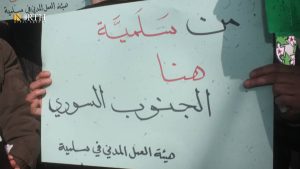 هيئة العمل المدني في سلمية
NORTH
من سَلَميَّة
هنا
الجنوب السوري
هيئة العمل المدني في سلمية